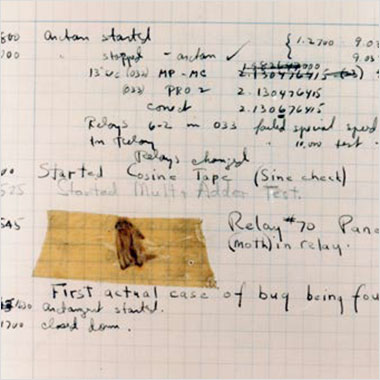 800 arctan started { 1.2700 9.03
" stopped - arctan ✓ 9.03
13"uc (032) MP - MC 2.130476415
(033) PRO 2 2.130476415
conv.t 2.130676415
Relays 6-2 in 033 failed special speed
in Relay 10,000 test.
Relays changed
Started Cosine Tape (Sine check)
525 Started Mult + Adder Test.
545 Relay #70 Pane
(moth) in relay.
First actual case of bug being fou
arctangent started.
1700 closed down.